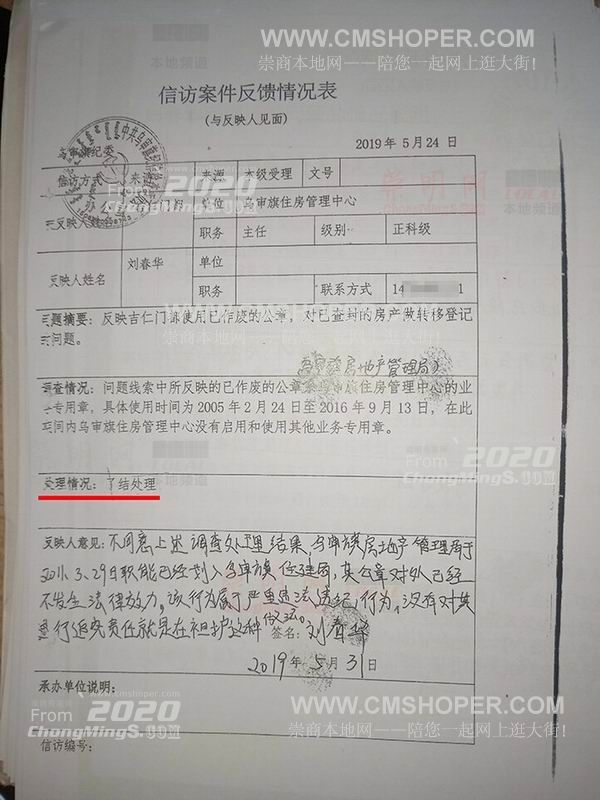 WWW.CMSHOPER.COM
崇商本地网——陪您一起网上逛大街!
信访案件反馈情况表
(与反映人见面)
2019年5月24日
纪委
信访方式 来 来源 本级受理 文号
反映人 单位 乌审旗住房管理中心
职务 主任 级别 正科级
反映人姓名 刘春华 单位
职务 联系方式 14 1
问题摘要:反映吉仁门都使用已作废的公章,对已查封的房产做转移登记
问题。
房地产管理局
调查情况:问题线索中所反映的已作废的公章系乌审旗住房管理中心的业
务专用章,具体使用时间为2005年2月24日至2016年9月13日,在此
期间内乌审旗住房管理中心没有启用和使用其他业务专用章。
处理情况:了结处理
反映人意见:不同意上述调查处理结果,乌审旗房地产管理局于
3.29日职能已经划入乌审旗住建局,其公章对外已经
不发生法律效力。该行为属于严重违法违纪行为,没有对其
进行追究责任就是在袒护这种做法。
签名:刘春华
2019年5月31日
承办单位说明:
信访编号:
From 2020
ChongMingS.COM
From 2020
ChongMingS.COM
WWW.CMSHOPER.COM
崇商本地网——陪您一起网上逛大街!
崇明网
ChongMing.COM
LOCAL
本地频道